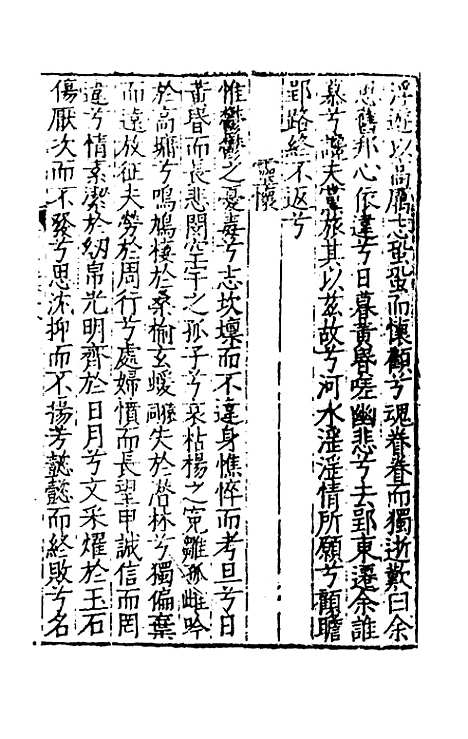 浮遊以高厲志蛩蛩而懷顧兮魂眷眷而獨逝歎曰余
思舊邦心依違兮日暮黃昏嗟幽悲兮去郢東遷余誰
慕兮讒夫黨旅其以茲故兮河水淫淫情所願兮顧瞻
郢路終不返兮
惟鬱鬱之憂毒兮志坎壈而不違身憔悴而考旦兮日
黃昏而長悲閔空宇之孤子兮哀枯楊之冤雛孤雌吟
於高墉兮鳴鳩棲於桑榆玄蝯失於潛林兮獨偏棄
而遠放征夫勞於周行兮處婦憤而長望申誠信而罔
違兮情素潔於紉帛光明齊於日月兮文采燿於玉石
傷厭次而不發兮思沈抑而不揚芳懿懿而終敗兮名